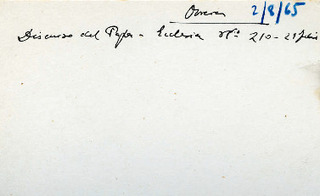 2/8/65
Discurso del Papa - Ecclesia Nº 210 - 21 julio